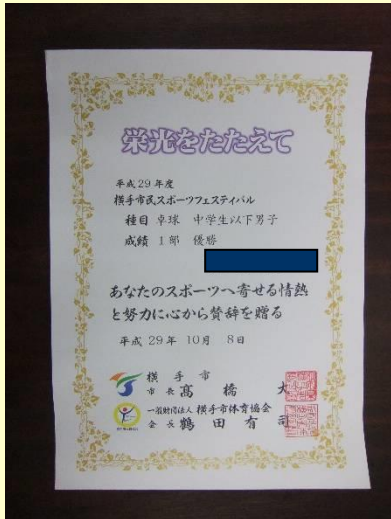 栄光をたたえて
平成29年度
横手市民スポーツフェスティバル
種目 卓球 中学生以下男子
成績 1部 優勝
あなたのスポーツへ寄せる情熱
と努力に心から賛辞を贈る
平成 29年 10月 8日
横手市
市長 髙橋 大
一般財団法人 横手市体育協会
会長 鶴田有司